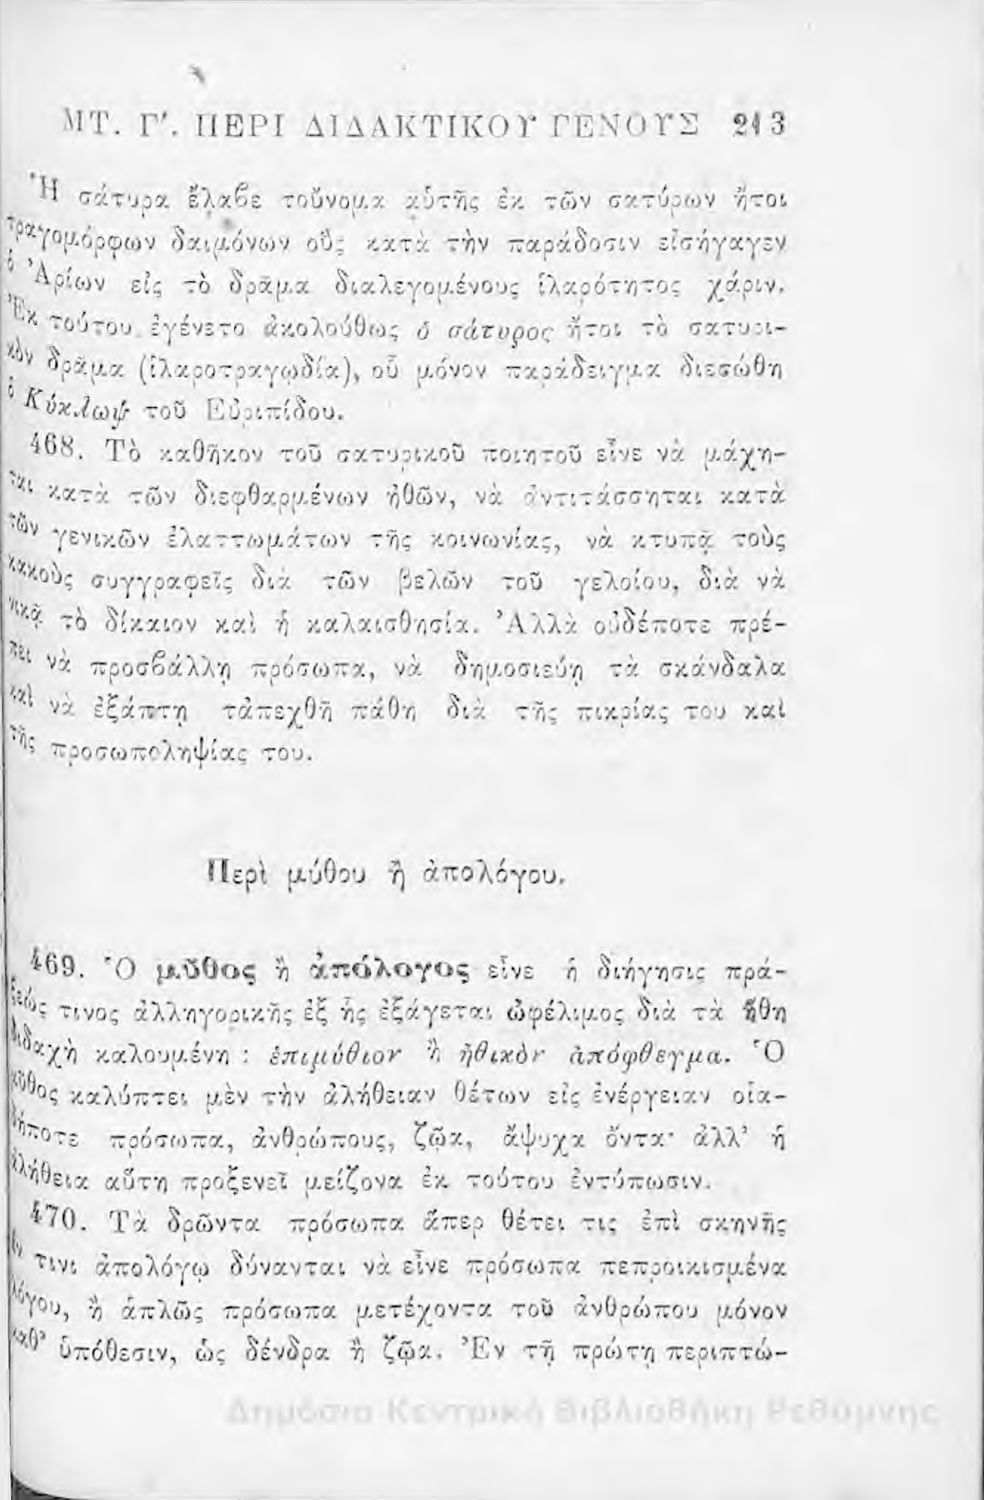 ΜΤ. Γʹ. ΠΕΡΙ ΔΙΔΑΚΤΙΚΟΥ ΓΕΝΟΥΣ 213
Ἡ σάτυρα ἔλαβε τοὔνομα αὐτῆς ἐκ τῶν σατύρων ἤτοι
τραγομόρφων δαιμόνων οὓς κατὰ τὴν παράδοσιν εἰσήγαγεν
ὁ Ἀρίων εἰς τὸ δρᾶμα διαλεγομένους ἱλαρότητος χάριν.
Ἐκ τούτου ἐγένετο ἀκολούθως ὁ σάτυρος ἤτοι τὸ σατυρι-
κὸν δρᾶμα (ἱλαροτραγῳδία), οὗ μόνον παράδειγμα διεσώθη
ὁ Κύκλωψ τοῦ Εὐριπίδου.
468. Τὸ καθῆκον τοῦ σατυρικοῦ ποιητοῦ εἶνε νὰ μάχη-
ται κατὰ τῶν διεφθαρμένων ἠθῶν, νὰ ἀντιτάσσηται κατὰ
τῶν γενικῶν ἐλαττωμάτων τῆς κοινωνίας, νὰ κτυπᾷ τοὺς
κακοὺς συγγραφεῖς διὰ τῶν βελῶν τοῦ γελοίου, διὰ νὰ
νικᾷ τὸ δίκαιον καὶ ἡ καλαισθησία. Ἀλλὰ οὐδέποτε πρέ-
πει νὰ προσβάλλῃ πρόσωπα, νὰ δημοσιεύῃ τὰ σκάνδαλα
καὶ νὰ ἐξάπτῃ τἀπεχθῆ πάθη διὰ τῆς πικρίας του καὶ
τῆς προσωποληψίας του.
Περὶ μύθου ἢ ἀπολόγου.
469. Ὁ μῦθος ἢ ἀπόλογος εἶνε ἡ διήγησις πρά-
ξεώς τινος ἀλληγορικῆς ἐξ ἧς ἐξάγεται ὠφέλιμος διὰ τὰ ἤθη
διδαχὴ καλουμένη : ἐπιμύθιον ἢ ἠθικὸν ἀπόφθεγμα. Ὁ
μῦθος καλύπτει μὲν τὴν ἀλήθειαν θέτων εἰς ἐνέργειαν οἷα-
δήποτε πρόσωπα, ἀνθρώπους, ζῷα, ἄψυχα ὄντα· ἀλλ’ ἡ
ἀλήθεια αὕτη προξενεῖ μείζονα ἐκ τούτου ἐντύπωσιν.
470. Τὰ δρῶντα πρόσωπα ἅπερ θέτει τις ἐπὶ σκηνῆς
ἔν τινι ἀπολόγῳ δύνανται νὰ εἶνε πρόσωπα πεπροικισμένα
λόγου, ἢ ἁπλῶς πρόσωπα μετέχοντα τοῦ ἀνθρώπου μόνον
καθ’ ὑπόθεσιν, ὡς δένδρα ἢ ζῷα. Ἐν τῇ πρώτῃ περιπτώ-
Δημόσια Κεντρική Βιβλιοθήκη Ρεθύμνης